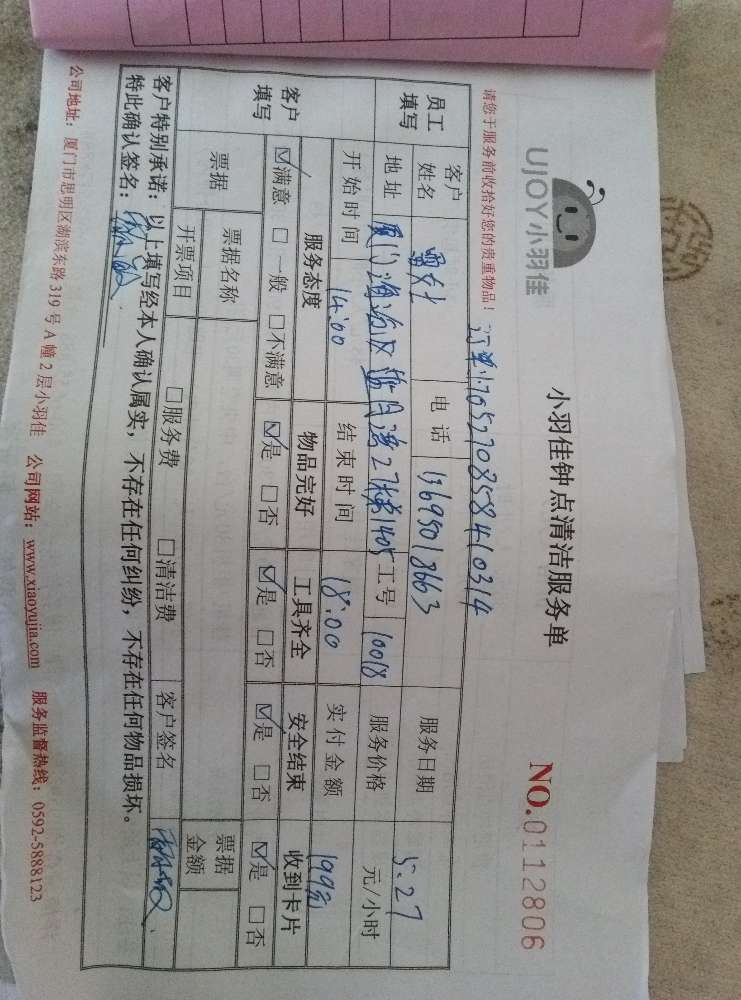 UJOY小羽佳
小羽佳钟点清洁服务单
NO.0112806
请您于服务前收拾好您的贵重物品！
订单1705270858410314
员工填写
客户姓名
电话 13695018663
服务日期 5.27
地址 厦门海沧区
27栋1405
工号 10018
服务价格 元/小时
开始时间 14:00
结束时间 18:00
实付金额
客户填写
服务态度 物品完好 工具齐全 安全结束 收到卡片
☑满意 □一般 □不满意 ☑是 □否 ☑是 □否 ☑是 □否 ☑是 □否
票据 票据名称 票据金额
开票项目 □服务费 □清洁费 客户签名
客户特别承诺：以上填写经本人确认属实，不存在任何纠纷，不存在任何物品损坏。
特此确认签名：
公司地址：厦门市思明区湖滨东路319号A幢2层小羽佳 公司网站：www.xiaoyujia.com 服务监督热线：0592-5888123